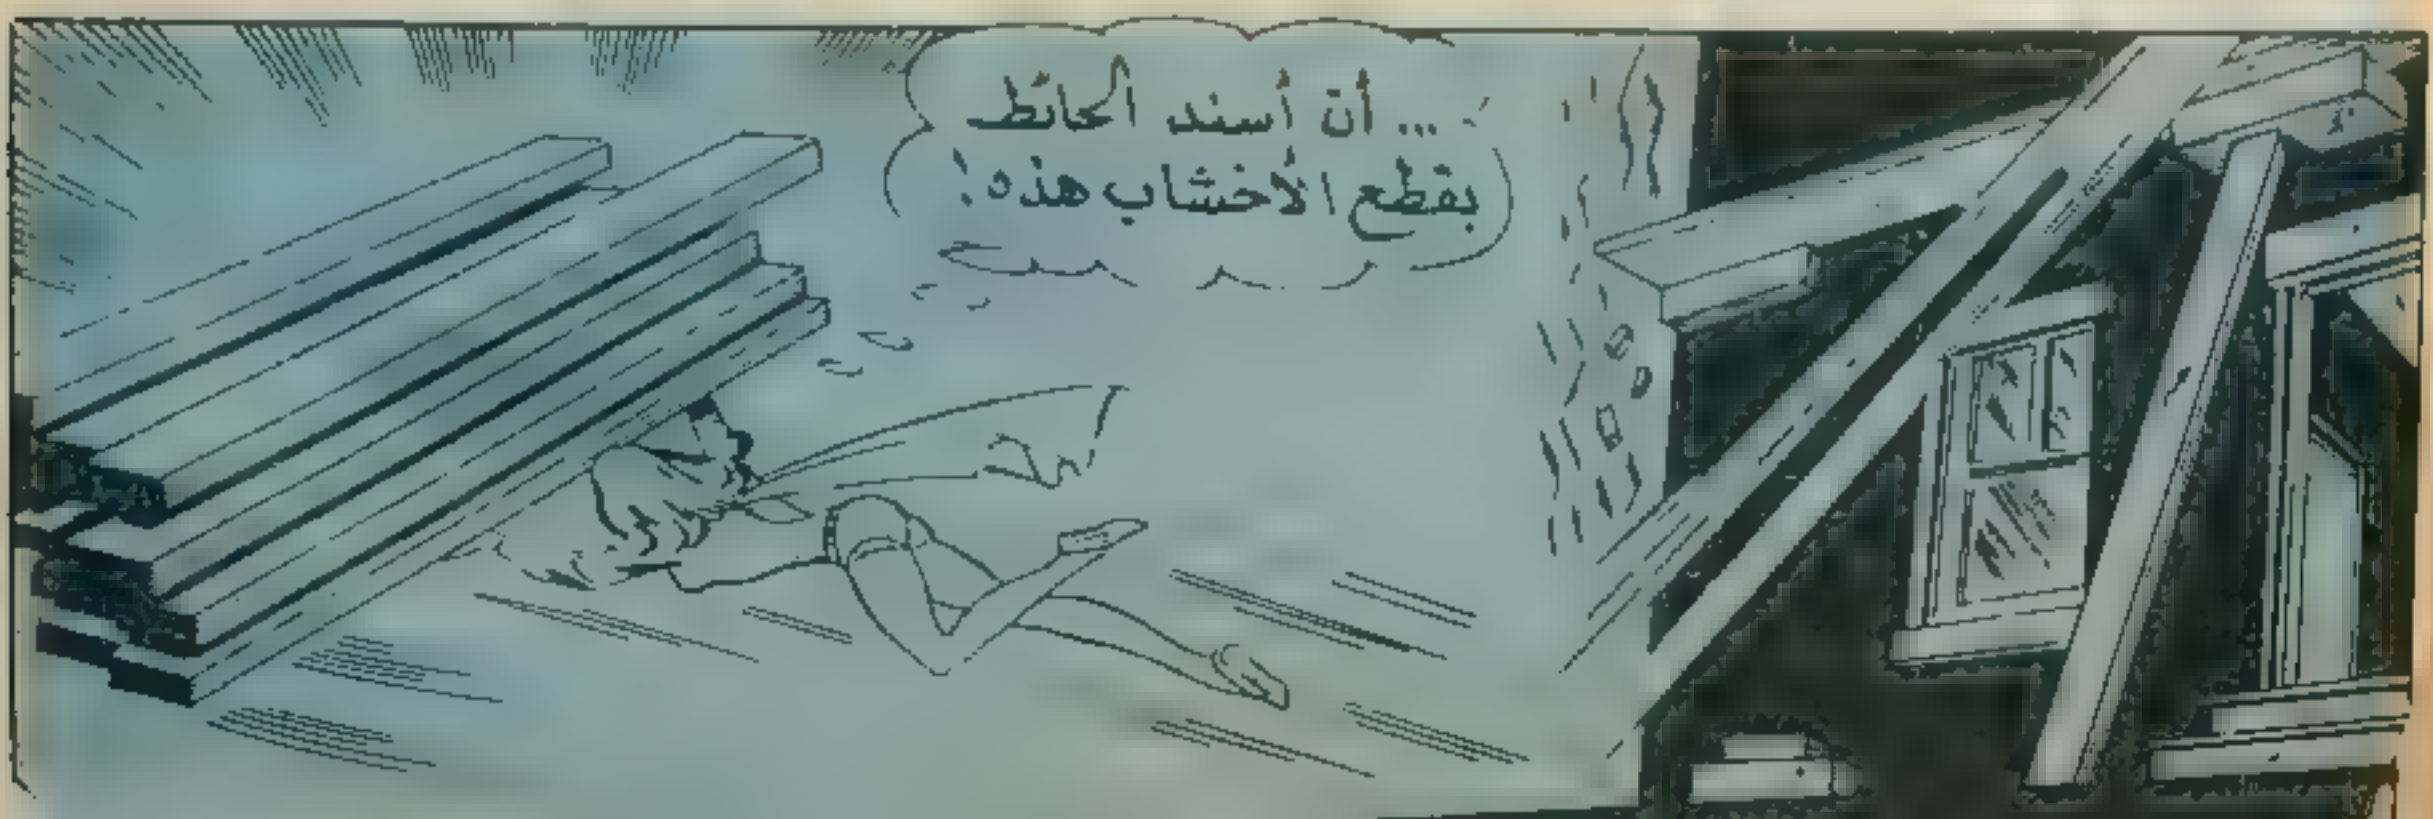 ... أن أسند الحائط
بقطع الأخشاب هذه!